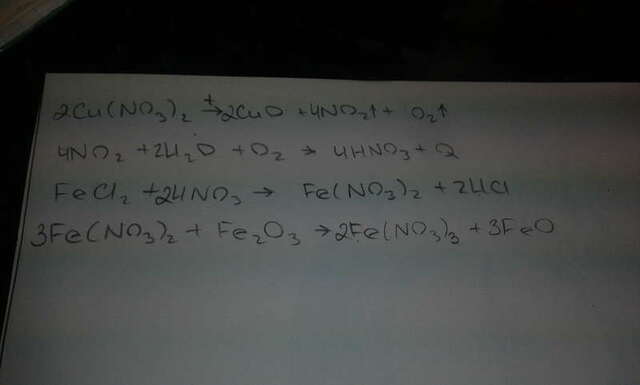 2Cu(NO₃)₂ →ᵗ 2CuO + 4NO₂↑ + O₂↑
4NO₂ + 2H₂O + O₂ → 4HNO₃ + Q
FeCl₂ + 2HNO₃ → Fe(NO₃)₂ + 2HCl
3Fe(NO₃)₂ + Fe₂O₃ → 2Fe(NO₃)₃ + 3FeO